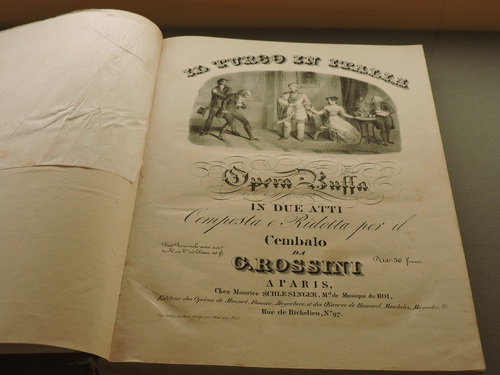 IL TURCO IN ITALIA
Opera Buffa
IN DUE ATTI
Composta e Ridotta per il
Cembalo
DA
G. ROSSINI
Prix: 36 francs
A PARIS,
Chez Maurice SCHLESINGER, Md. de Musique du ROI,
Editeur des Opéras de Mozart, Rossini, Meyerbeer, et des Œuvres de Hummel, Moschelès,
Rue de Richelieu, No. 97.